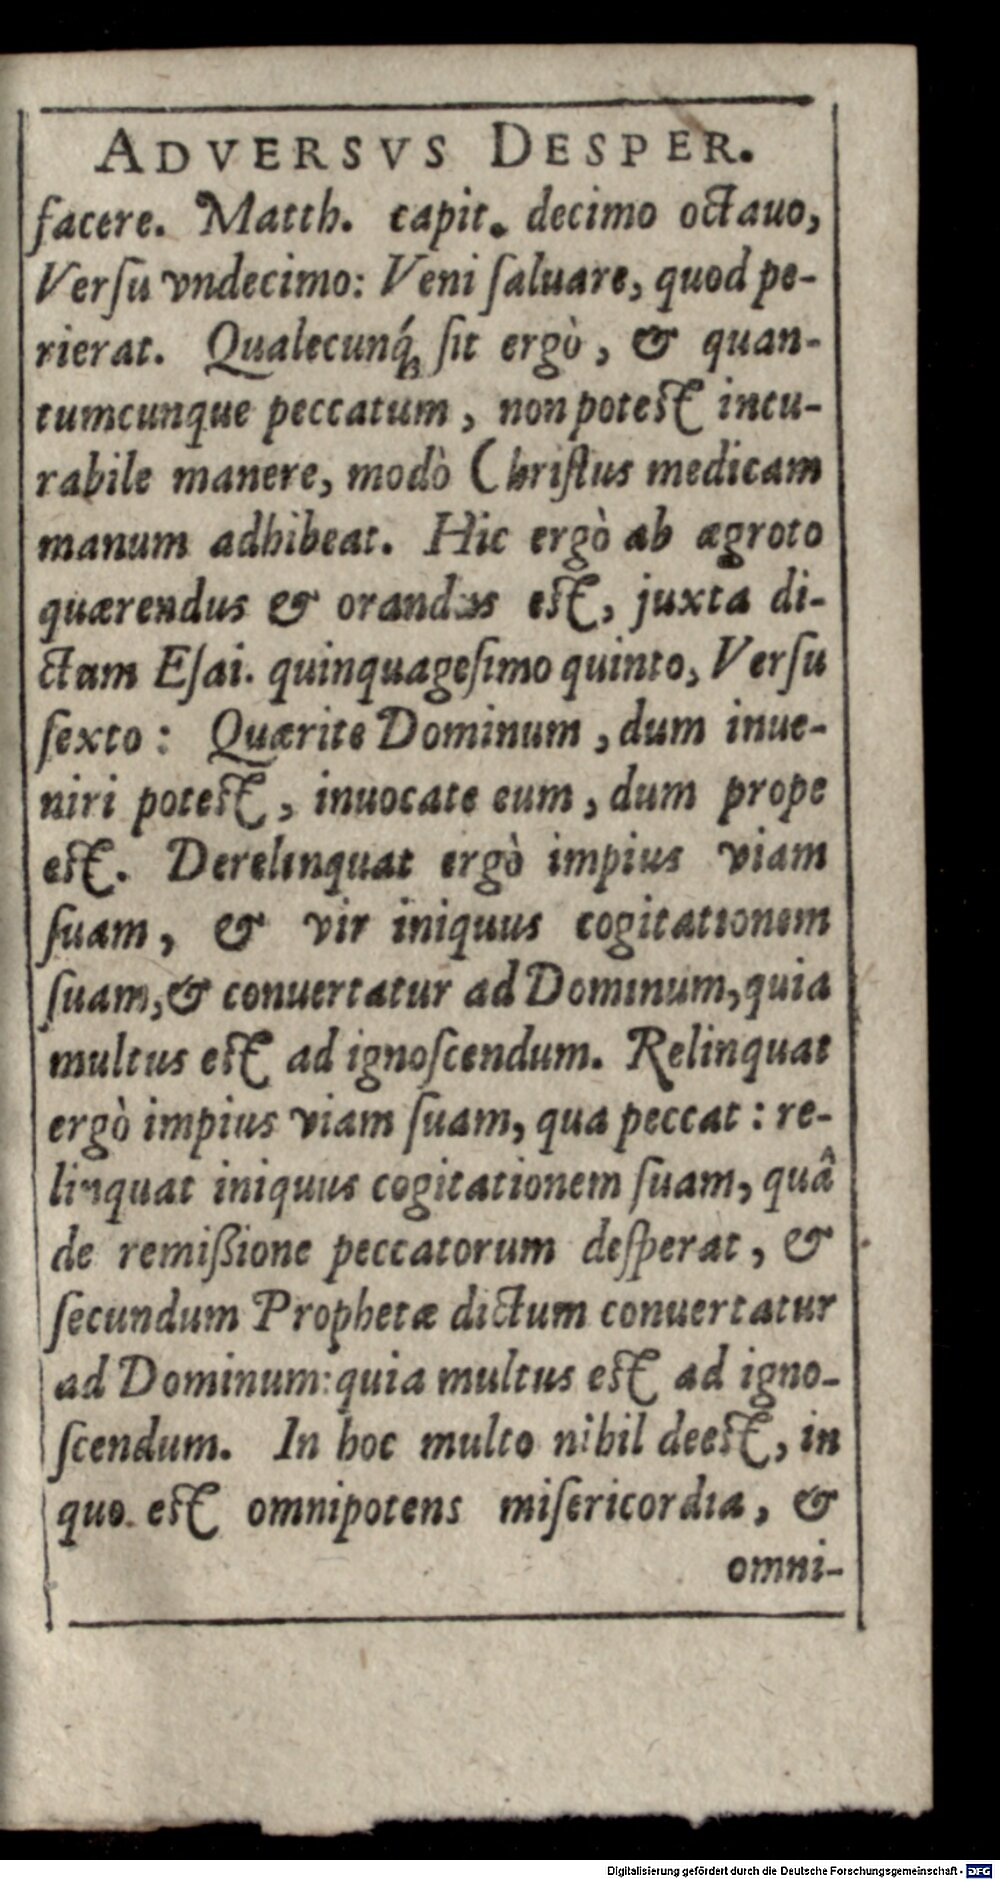 ADVERSVS DESPER.
facere. Matth. capit. decimo octauo,
Verſu vndecimo: Veni ſaluare, quod pe-
rierat. Qualecunq́; ſit ergò, & quan-
tumcunque peccatum, non poteſt incu-
rabile manere, modò Chriſtus medicam
manum adhibeat. Hic ergò ab ægroto
quærendus & orandus eſt, juxta di-
ctum Eſai. quinquageſimo quinto, Verſu
ſexto: Quærite Dominum, dum inue-
niri poteſt, inuocate eum, dum prope
eſt. Derelinquat ergò impius viam
ſuam, & vir iniquus cogitationem
ſuam, & conuertatur ad Dominum, quia
multus eſt ad ignoſcendum. Relinquat
ergò impius viam ſuam, qua peccat: re-
linquat iniquus cogitationem ſuam, quâ
de remißione peccatorum deſperat, &
ſecundum Prophetæ dictum conuertatur
ad Dominum: quia multus eſt ad igno-
ſcendum. In hoc multo nihil deeſt, in
quo eſt omnipotens miſericordia, &
omni-
Digitalisierung gefördert durch die Deutsche Forschungsgemeinschaft - DFG